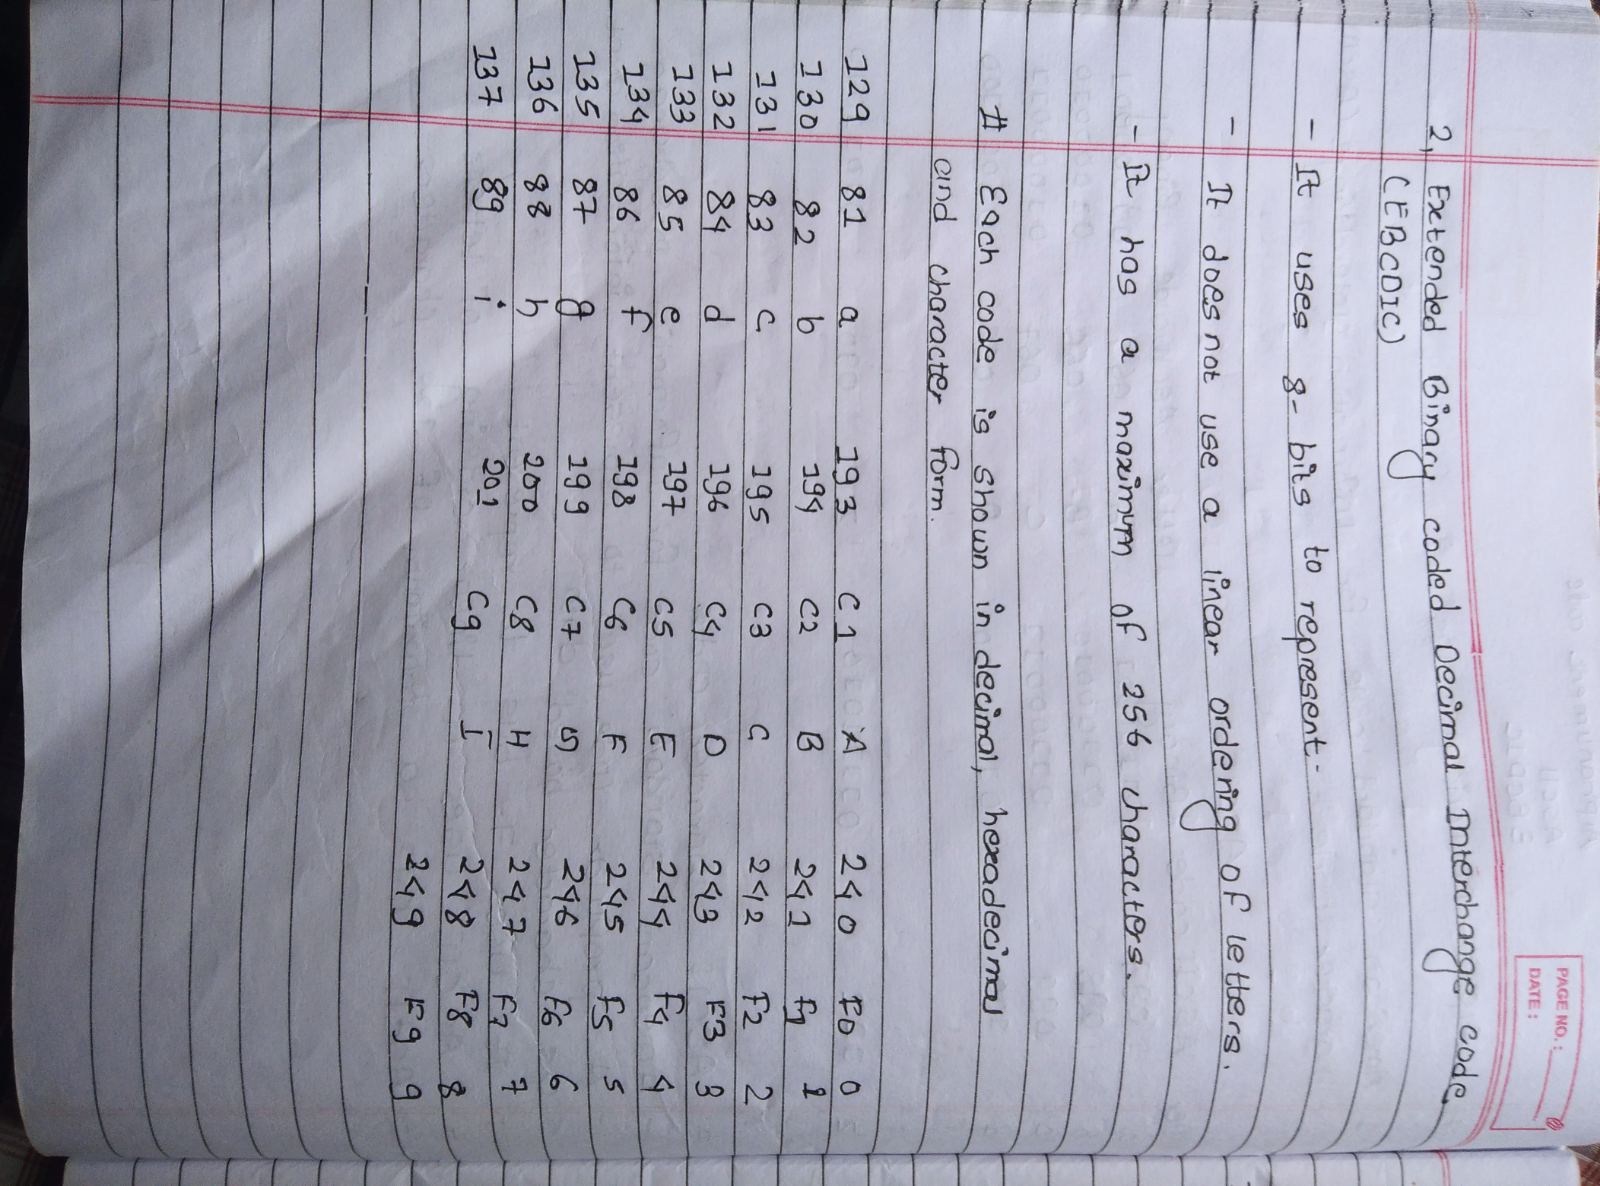 PAGE NO.:
DATE:
2, Extended Binary coded Decimal Interchange code
(EBCDIC)
- It uses 8-bits to represent.
- It does not use a linear ordering of letters.
- It has a maximum of 256 characters.
# Each code is shown in decimal, hexadecimal
and character form.
129 81 a 193 C1 A 240 F0 0
130 82 b 194 C2 B 241 F1 1
131 83 c 195 C3 C 242 F2 2
132 84 d 196 C4 D 243 F3 3
133 85 e 197 C5 E 244 F4 4
134 86 f 198 C6 F 245 F5 5
135 87 g 199 C7 G 246 F6 6
136 88 h 200 C8 H 247 F7 7
137 89 i 201 C9 I 248 F8 8
249 F9 9